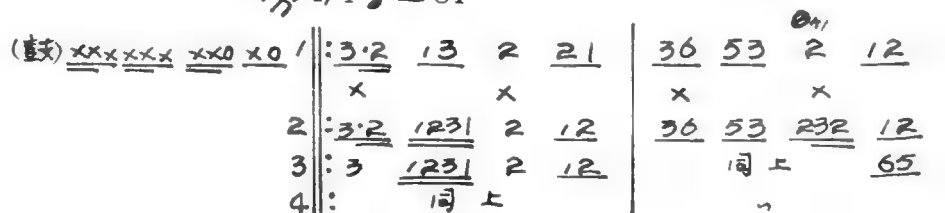 (鼓) xxx xxx xx0 x0 1 ‖: 3·2 13 2 21 | 36 53 2 12
x x x x
2 ‖: 3·2 1231 2 12 | 36 53 232 12
3 : 3 1231 2 12 | 同上 65
4 : 同上 | 〃